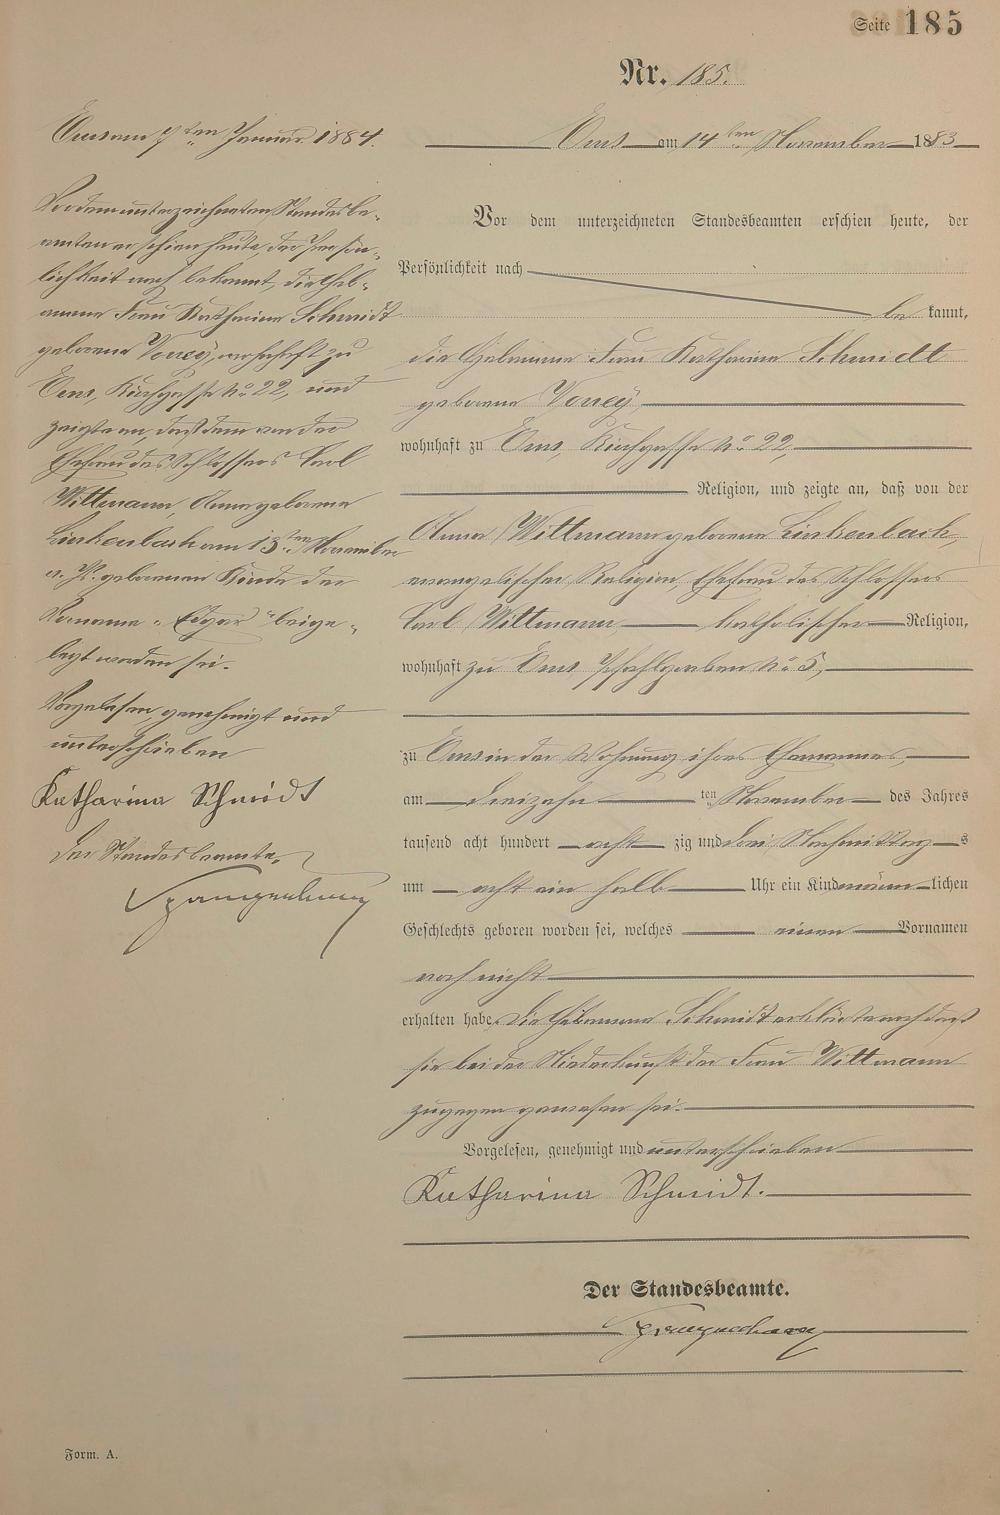 Seite 185
Nr. 185.
Ems am 14ten November 1883
Vor dem unterzeichneten Standesbeamten erschien heute, der
Persönlichkeit nach
be kannt,
die Hebamme Frau Katharina Schmidt
geborene Vorrey
wohnhaft zu Ems, Kirchgasse No 22,
Religion, und zeigte an, daß von der
Anna Wittmann geborene Linkenbach,
evangelischer Religion, Ehefrau des Schlossers
Carl Wittmann katholischer Religion,
wohnhaft zu Ems Pfahlgraben No 5,
zu Ems in der Wohnung ihres Ehemannes,
am dreizehn ten November des Jahres
tausend acht hundert acht zig und drei Nachmittag s
um acht ein halb Uhr ein Kind männ lichen
Geschlechts geboren worden sei, welches einen Vornamen
noch nicht
erhalten habe. Die Hebamme Schmidt erklärte noch daß
sie bei der Niederkunft der Frau Wittmann
zugegen gewesen sei.
Vorgelesen, genehmigt und unterschrieben
Katharina Schmidt.
Der Standesbeamte.
Spangenberg
Ems am 7ten Januar 1884.
Vor dem unterzeichneten Standesbe-
amten erschien heute, der Persön-
lichkeit nach bekannt, die Heb-
amme Frau Katharina Schmidt
geborene Vorrey, wohnhaft zu
Ems, Kirchgasse No 22, und
zeigte an, daß dem von der
Ehefrau des Schlossers Carl
Wittmann, Anna geborene
Linkenbach am 13ten November
v. Js. geborenen Kinde der
Vorname „Edgar“ beige-
legt worden sei.
Vorgelesen, genehmigt und
unterschrieben
Katharina Schmidt
Der Standesbeamte,
Spangenberg
Form. A.